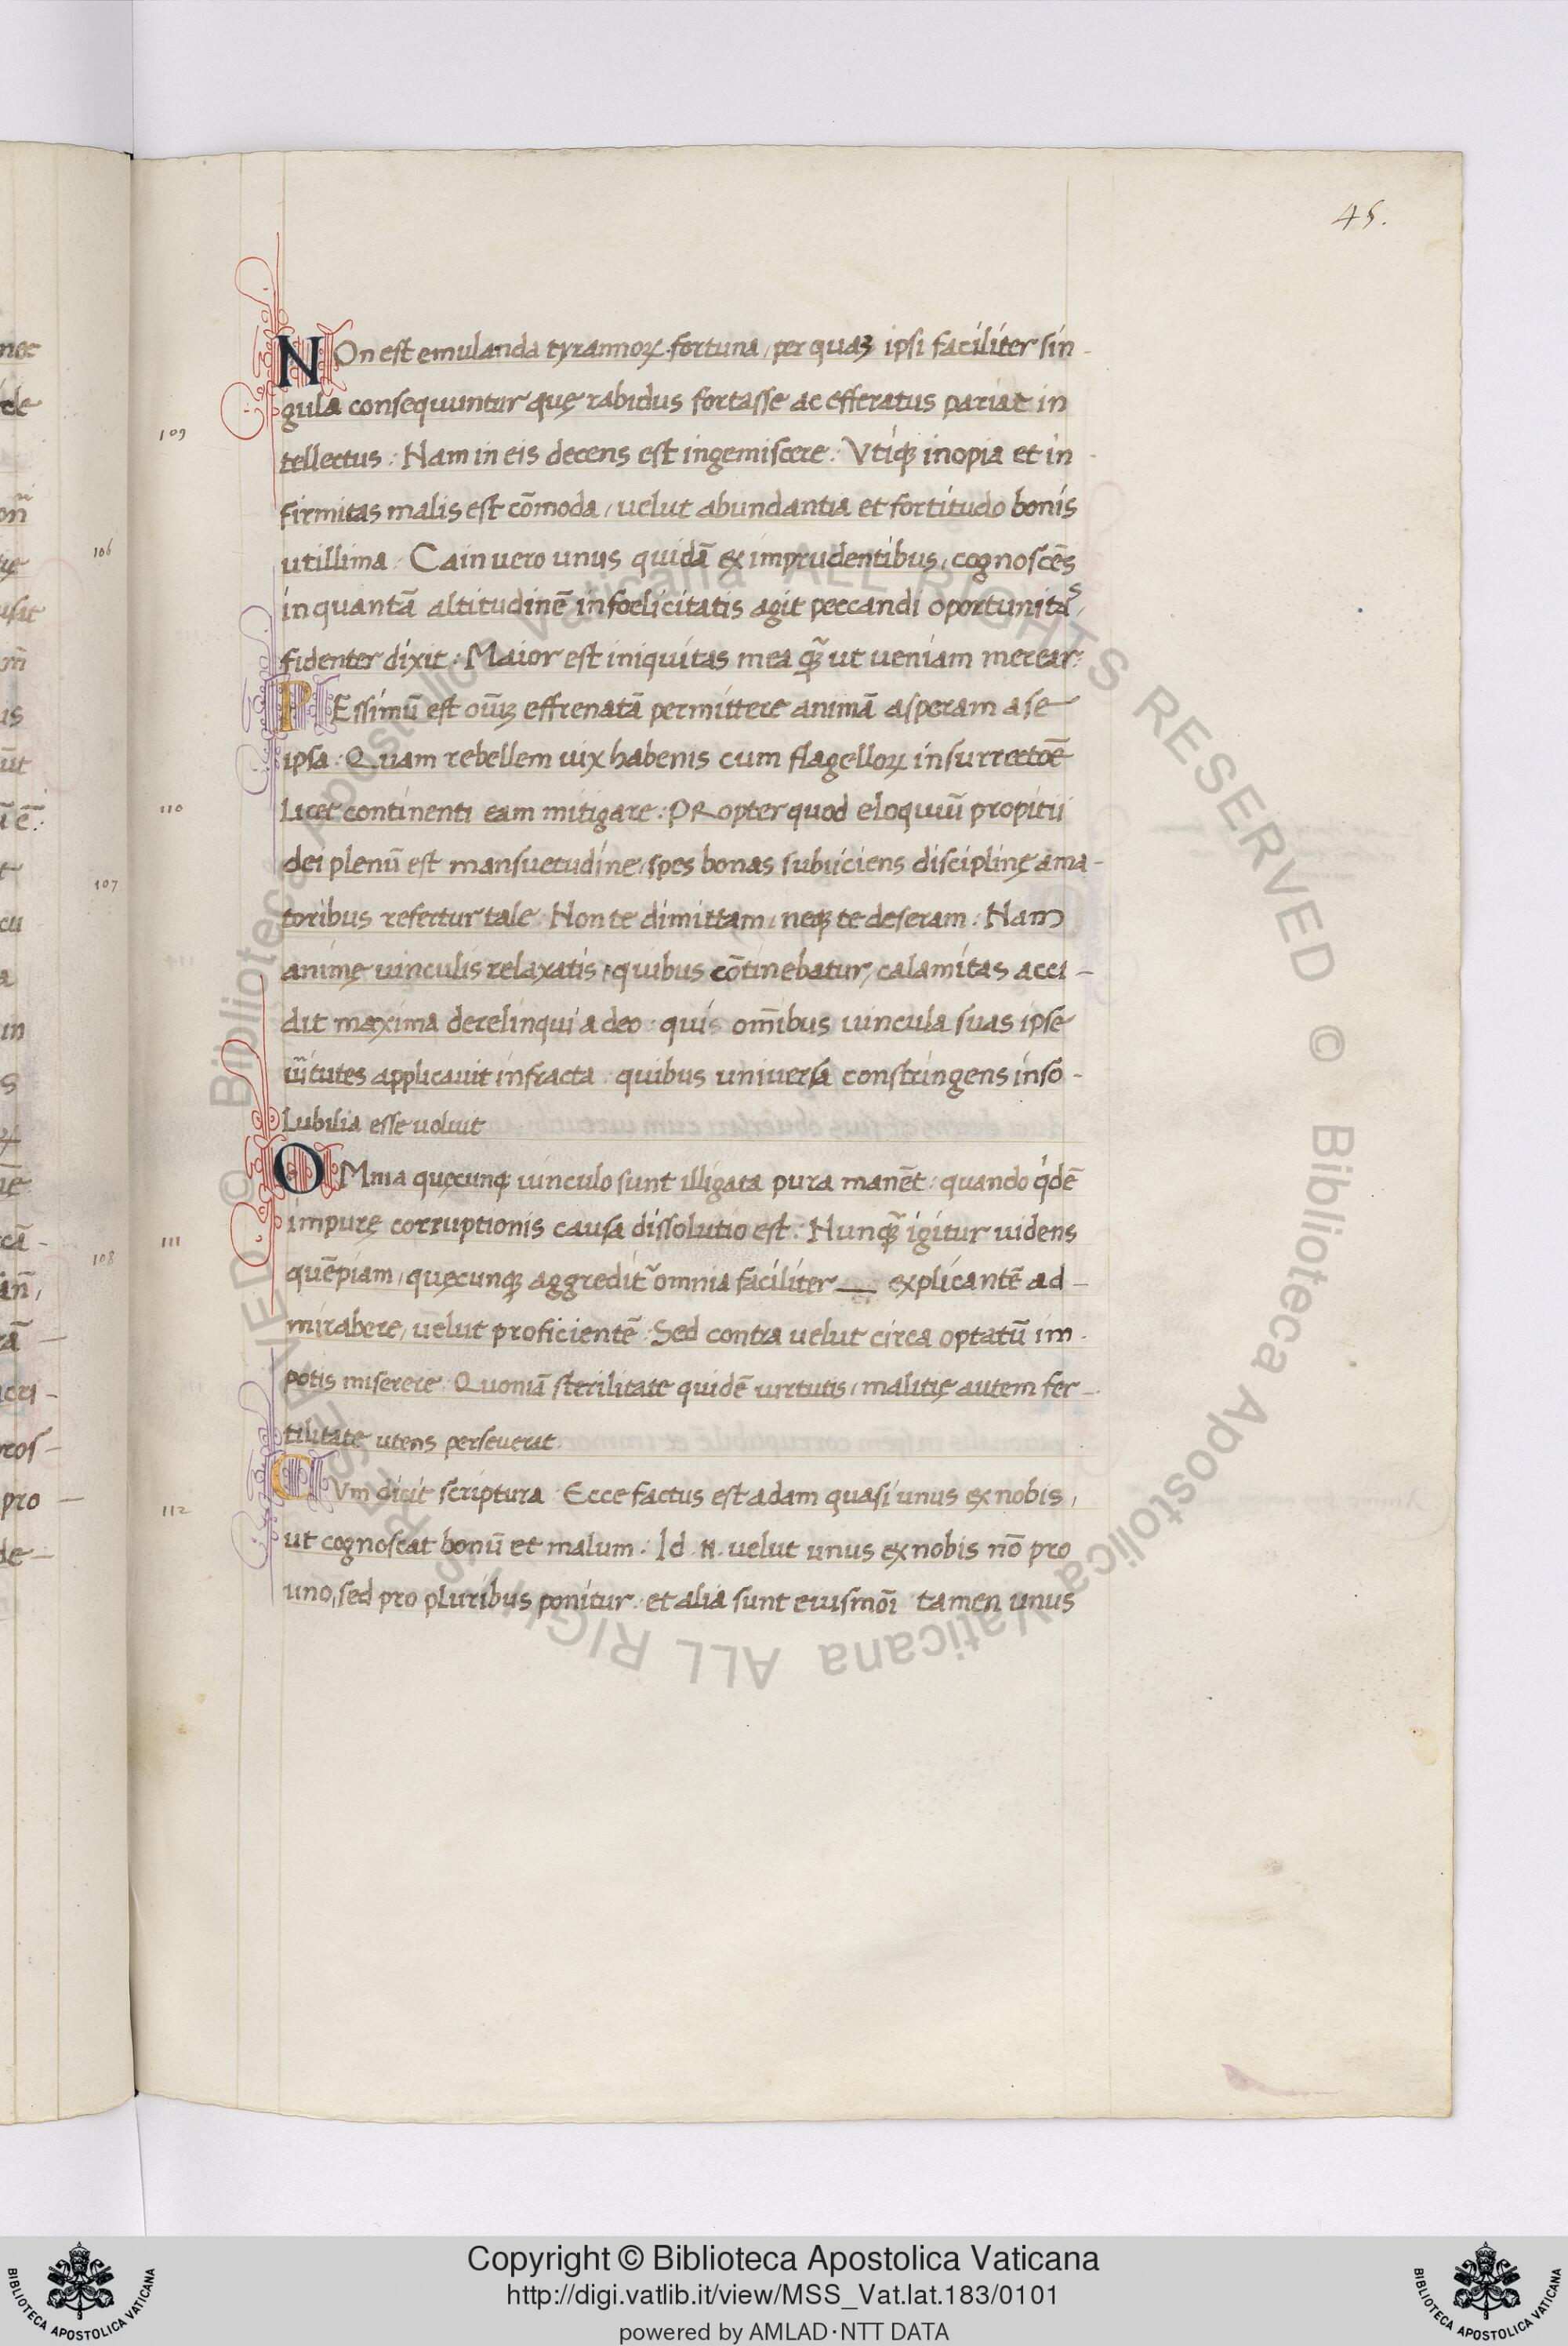 45.
NOn est emulanda tyrannoꝝ fortuna, per quaꝫ ipsi faciliter sin-
gula consequuntur quę rabidus fortasse ac efferatus pariat in
109
tellectus: Nam in eis decens est ingemiscere: Vtiqꝫ inopia et in-
firmitas malis est cōmoda, uelut abundantia et fortitudo bonis
utillima. Cain uero unus quidā ex imprudentibus, cognoscēs
in quantā altitudinē infoelicitatis agit peccandi oportunitaˢ,
fidenter dixit: Maior est iniquitas mea qꝫ̃ ut ueniam merear:
PEssimū est oūiꝫ effrenatā permittere animā asperam a se
ipsa: Quam rebellem uix habenis cum flagelloꝝ insurrectōe
110
Licet continenti eam mitigare: PRopter quod eloquiū propitii
dei plenū est mansuetudine, spes bonas subiiciens disciplinę ama-
toribus refertur tale: Non te dimittam, neqꝫ te deseram: Nam
animę uinculis relaxatis, quibus cōtinebatur, calamitas acci-
dit maxima derelinqui a deo: quis om̄ibus uincula suas ipse
uir̃tutes applicauit infracta: quibus uniuersa constringens inso-
Lubilia esse uoluit
OMnia quęcunqꝫ uinculo sunt illigata pura manēt: quando qͥdē
111
impurę corruptionis causa dissolutio est: Nunqꝫ̃ igitur uidens
quēpiam, quęcunqꝫ aggredit᷑ omnia faciliter— explicantē ad-
mirabere, uelut proficientē: Sed contra uelut circa optatū im-
potis miserere: Quoniā sterilitate quidē uirtutis, malitię autem fer-
tilitate utens perseuerat:
CVm dicit scriptura: Ecce factus est adam quasi unus ex nobis,
112
ut cognoscat bonū et malum: Id .N. uelut unus ex nobis nō pro
uno, sed pro pluribus ponitur: et alia sunt eiusmōi tamen unus
106
107
108
© Biblioteca Apostolica Vaticana ALL RIGHTS RESERVED © Biblioteca Apostolica Vaticana ALL RIGHTS RESERVED
Copyright © Biblioteca Apostolica Vaticana
http://digi.vatlib.it/view/MSS_Vat.lat.183/0101
powered by AMLAD·NTT DATA
BIBLIOTECA APOSTOLICA VATICANA
BIBLIOTECA APOSTOLICA VATICANA